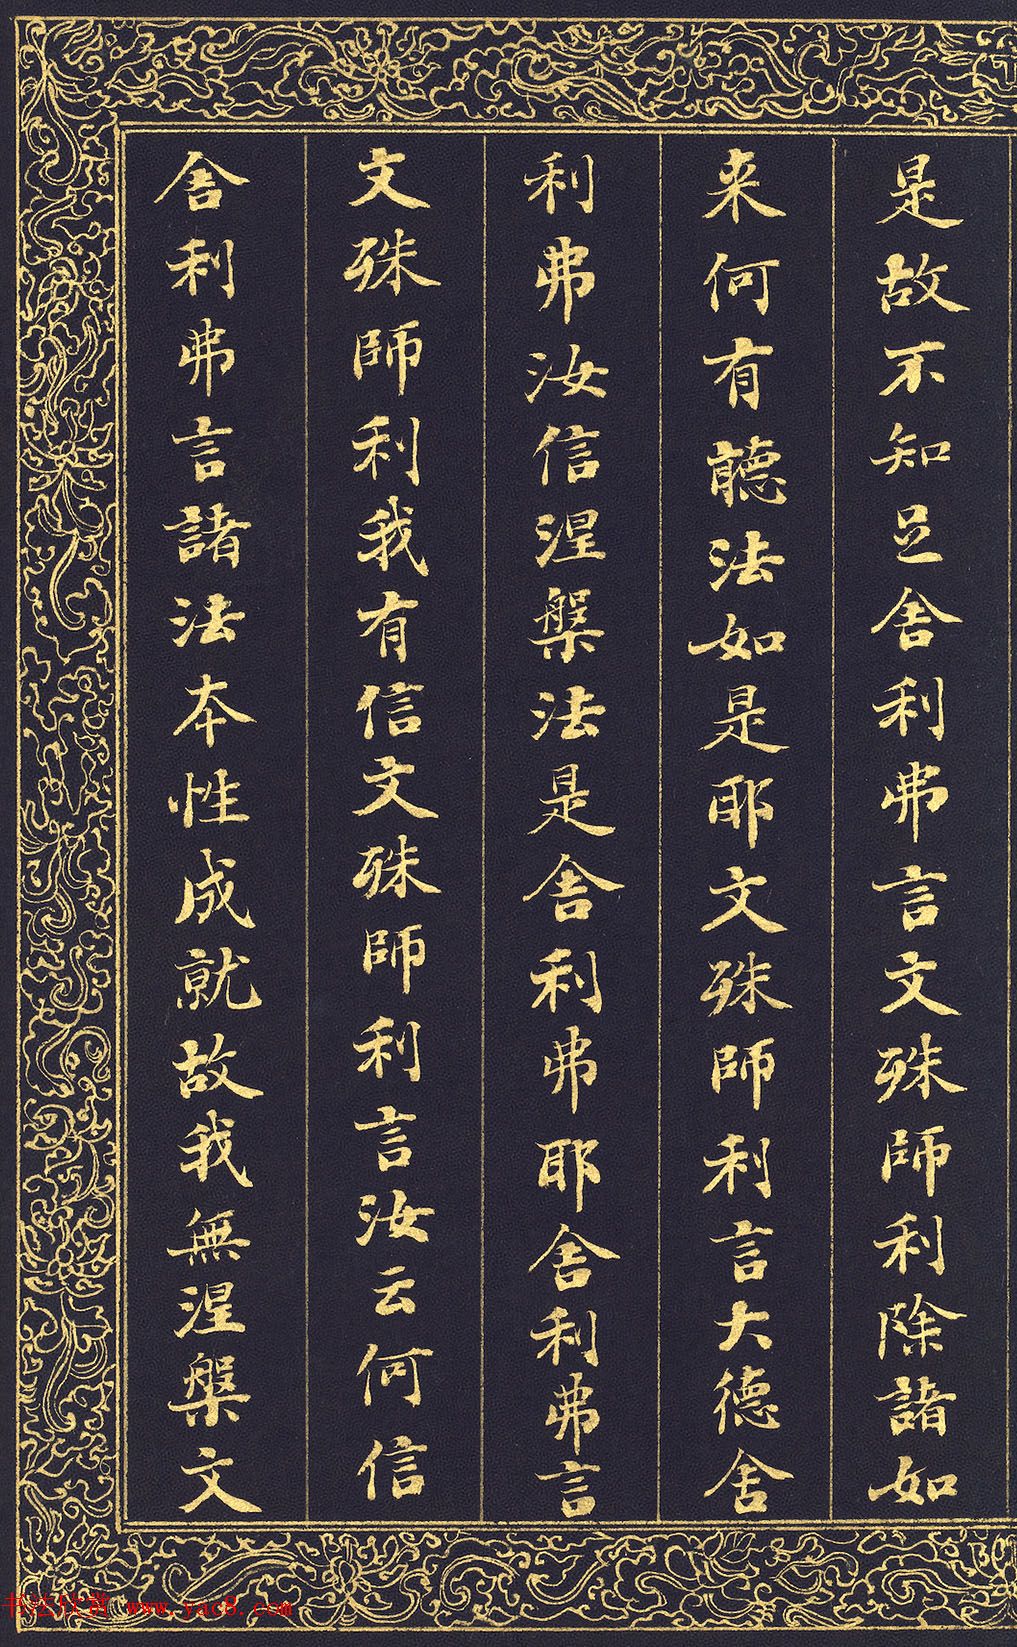 是故不知足舍利弗言文殊師利除諸如
来何有聽法如是耶文殊師利言大德舍
利弗汝信涅槃法是舍利弗耶舍利弗言
文殊師利我有信文殊師利言汝云何信
舍利弗言諸法本性成就故我無涅槃文
书法欣赏 www.yac8.com